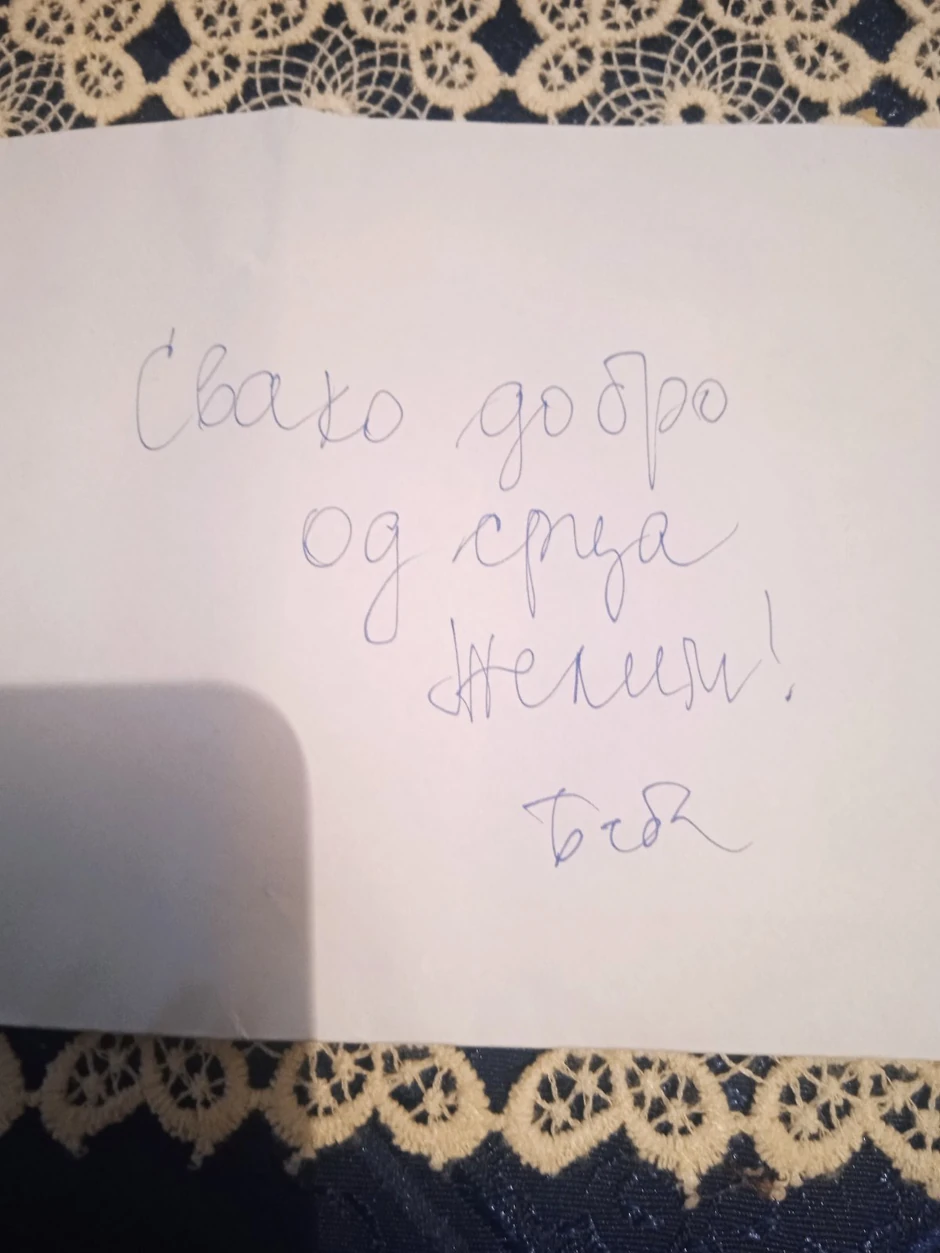 Свако добро
од срца
желим!
Баба